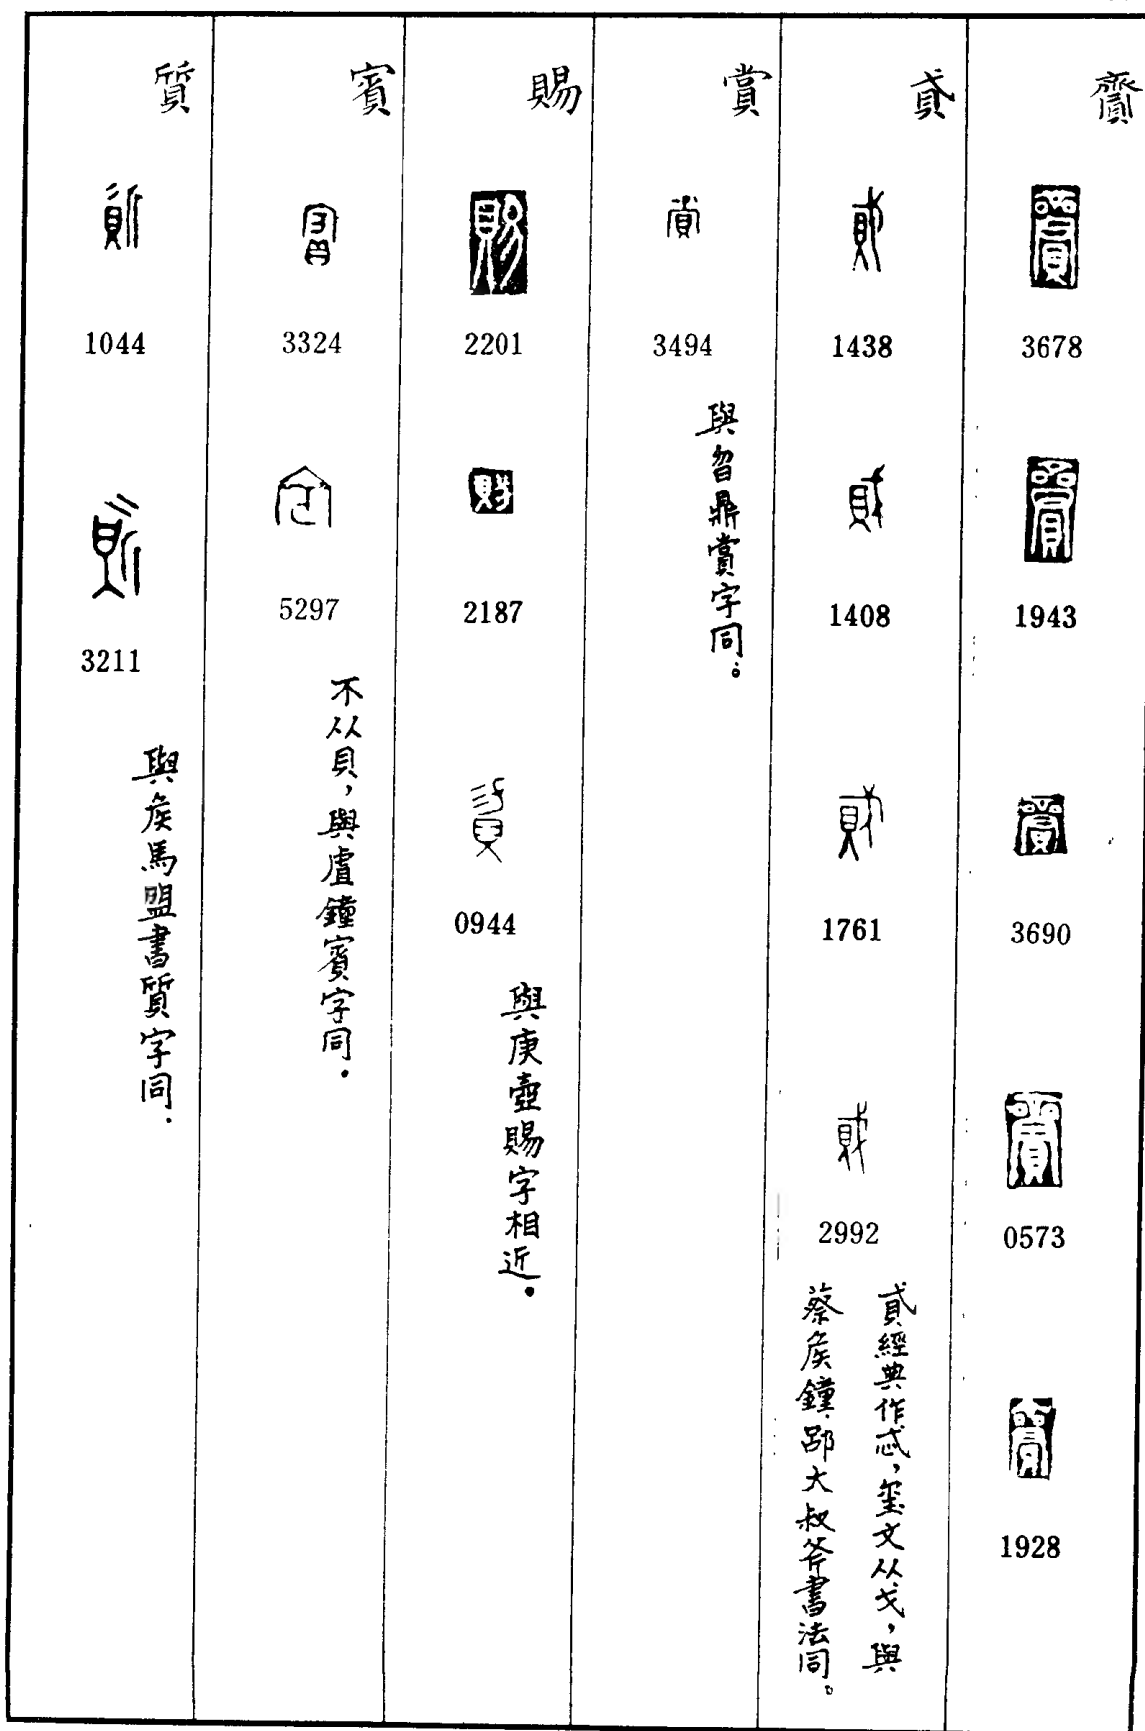 齎
3678
1943
3690
0573
1928
貣
1438
1408
1761
2992
貣經典作忒，玺文从戈，與
蔡侯鐘、郘大叔斧書法同。
賞
3494
與曶鼎賞字同。
賜
2201
2187
0944
與庚壺賜字相近。
賓
3324
5297
不从貝，與虘鐘賓字同．
質
1044
3211
與侯馬盟書質字同．